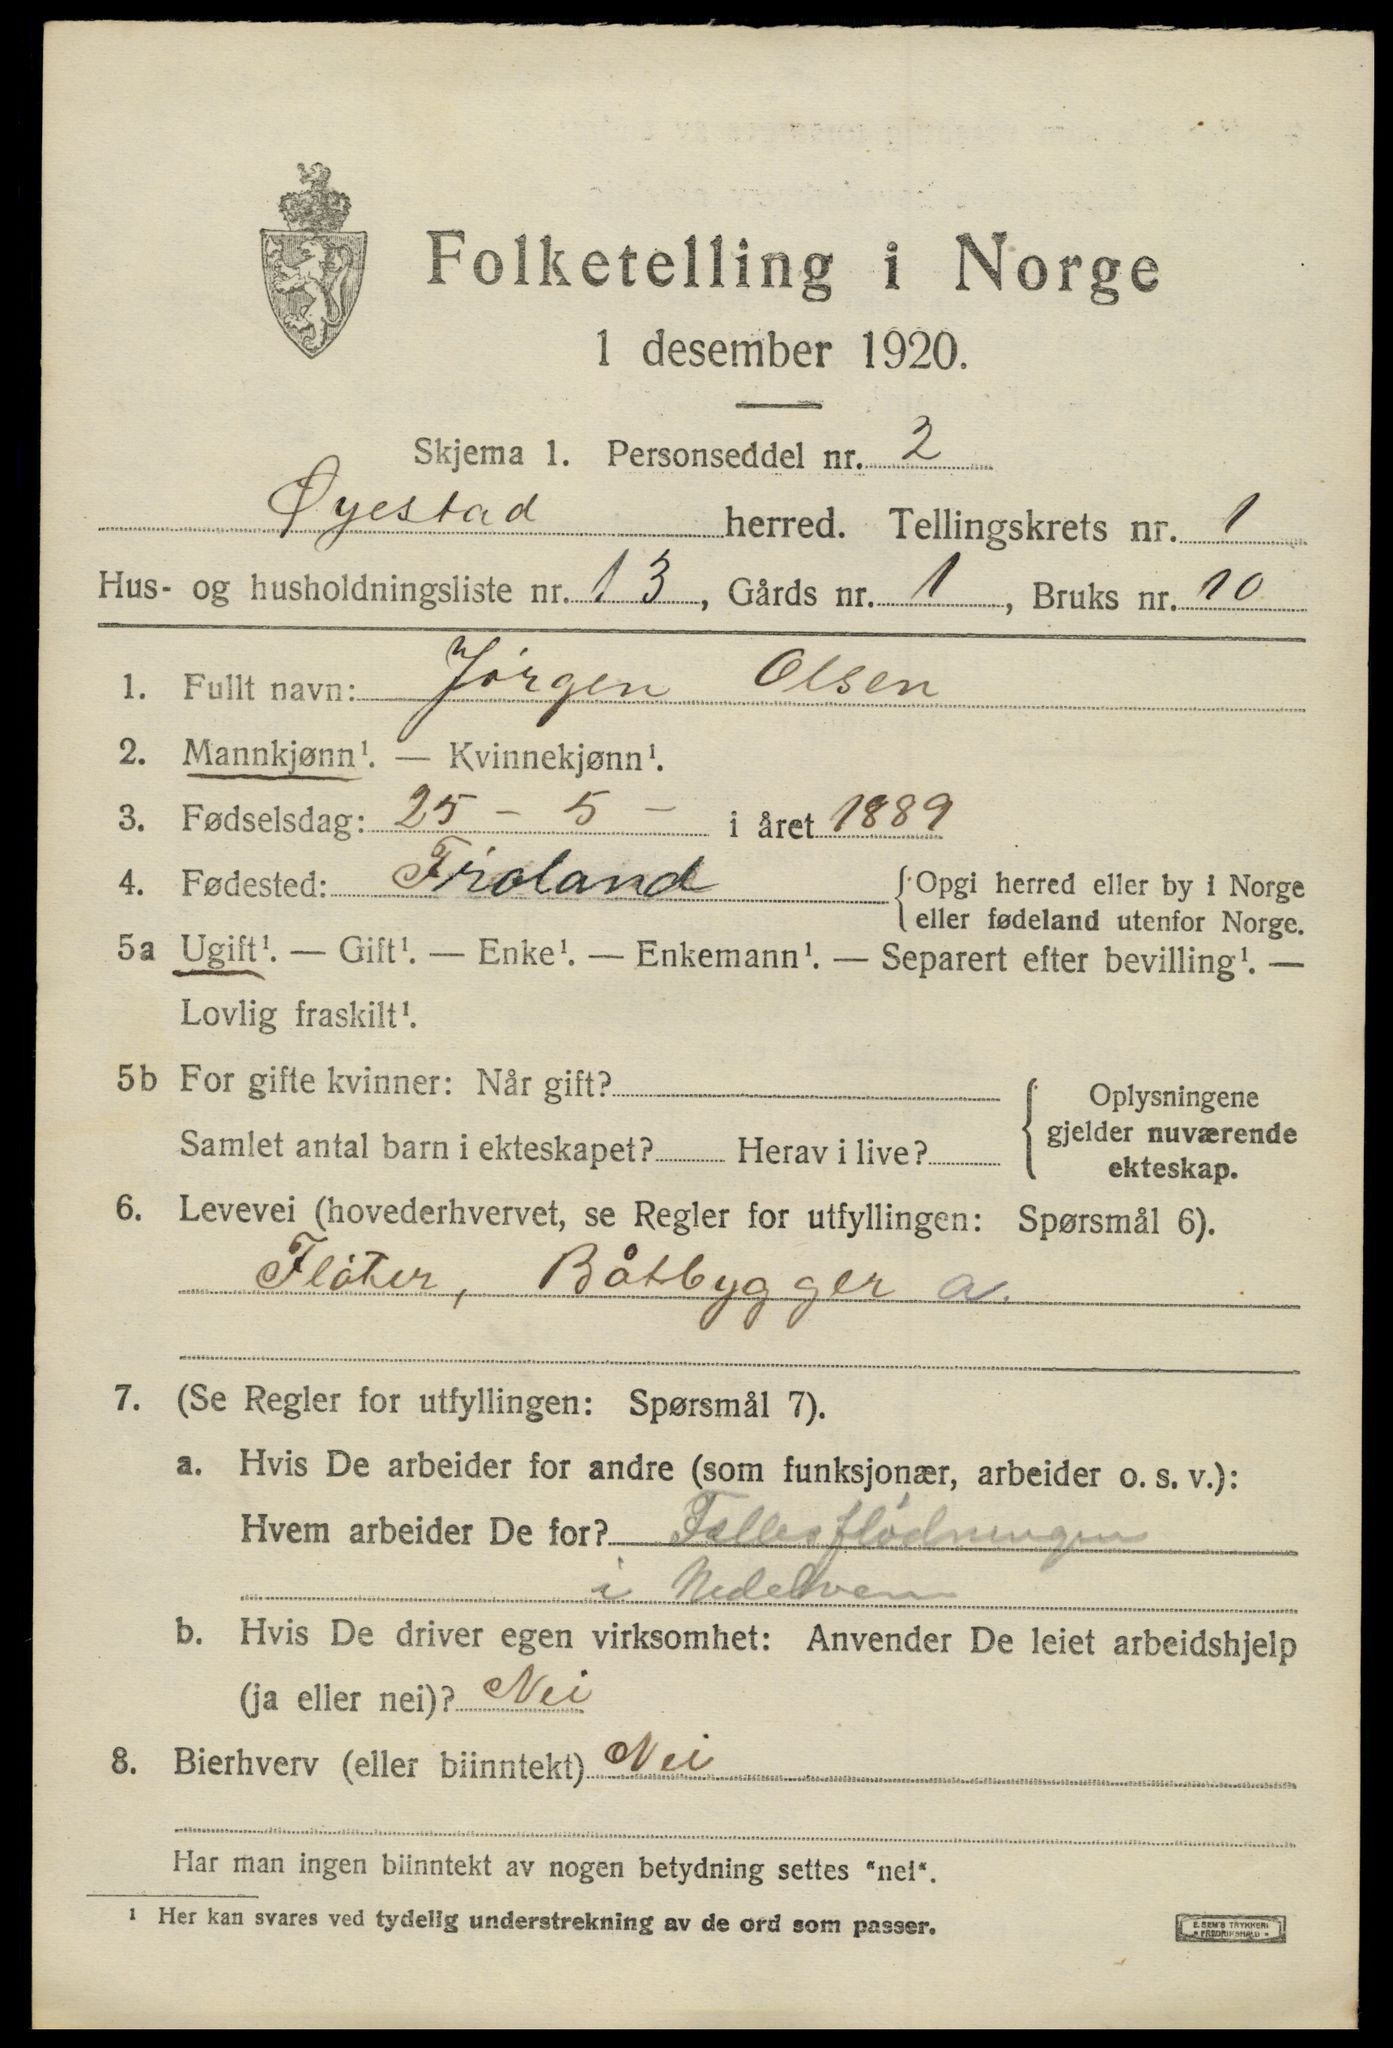 Folketelling i Norge
1 desember 1920.
Skjema 1. Personseddel nr. 2
Øyestad herred. Tellingskrets nr. 1
Hus- og husholdningsliste nr. 13, Gårds nr. 1, Bruks nr. 10
1. Fullt navn: Jørgen Olsen
2. Mannkjønn¹. — Kvinnekjønn¹.
3. Fødselsdag: 25 - 5 - i året 1889
4. Fødested: Froland {Opgi herred eller by i Norge
eller fødeland utenfor Norge.
5a Ugift¹. — Gift¹. — Enke¹. — Enkemann¹. — Separert efter bevilling¹. —
Lovlig fraskilt¹.
5b For gifte kvinner: Når gift?
Samlet antal barn i ekteskapet? Herav i live?
Oplysningene
gjelder nuværende
ekteskap.
6. Levevei (hovederhvervet, se Regler for utfyllingen: Spørsmål 6).
Fløter, Båtbygger a.
7. (Se Regler for utfyllingen: Spørsmål 7).
a. Hvis De arbeider for andre (som funksjonær, arbeider o. s. v.):
Hvem arbeider De for? Fellesflødningen
i Nidelven
b. Hvis De driver egen virksomhet: Anvender De leiet arbeidshjelp
(ja eller nei)? Nei
8. Bierhverv (eller biinntekt) Nei
Har man ingen biinntekt av nogen betydning settes "nei".
¹ Her kan svares ved tydelig understrekning av de ord som passer.
E. SEM'S TRYKKERI
FREDRIKSHALD